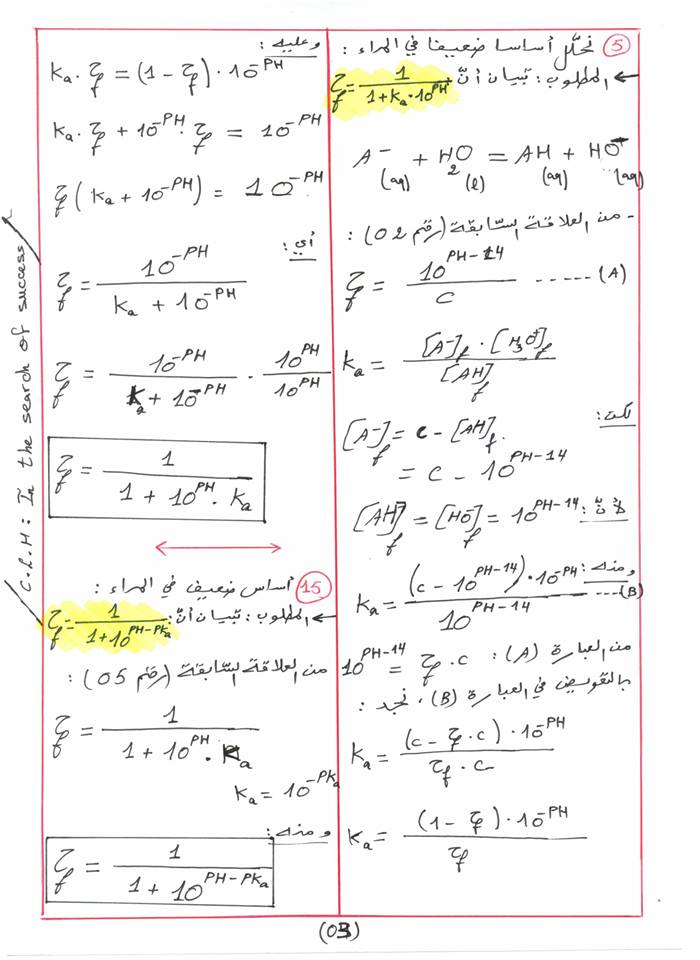 ⑤ نحلّل أساسا ضعيفا في الماء :
← المطلوب : تبيان أنّ τf = 1 / (1 + Ka · 10^PH)
A⁻(aq) + H2O(l) = AH(aq) + HO⁻(aq)
- من العلاقة السّابقة (رقم 02) :
τf = 10^(PH-14) / C ----- (A)
Ka = [A⁻]f · [H3O⁺]f / [AH]f
لكن :
[A⁻]f = C - [AH]f
= C - 10^(PH-14)
لأنّ : [AH]f = [HO⁻]f = 10^(PH-14)
ومنه : Ka = (C - 10^(PH-14)) · 10^(-PH) / 10^(PH-14) --- (B)
من العبارة (A) : 10^(PH-14) = τf · C
بالتعويض في العبارة (B) ، نجد :
Ka = (C - τf · C) · 10^(-PH) / (τf · C)
Ka = (1 - τf) · 10^(-PH) / τf
وعليه :
Ka · τf = (1 - τf) · 10^(-PH)
Ka · τf + 10^(-PH) · τf = 10^(-PH)
τf (Ka + 10^(-PH)) = 10^(-PH)
أي :
τf = 10^(-PH) / (Ka + 10^(-PH))
τf = 10^(-PH) / (Ka + 10^(-PH)) · 10^PH / 10^PH
τf = 1 / (1 + 10^PH · Ka)
⑮ أساس ضعيف في الماء :
← المطلوب : تبيان أنّ : τf = 1 / (1 + 10^(PH-PKa))
من العلاقة السّابقة (رقم 05) :
τf = 1 / (1 + 10^PH · Ka)
Ka = 10^(-PKa)
ومنه :
τf = 1 / (1 + 10^(PH-PKa))
C.L.H : In the search of success
(03)